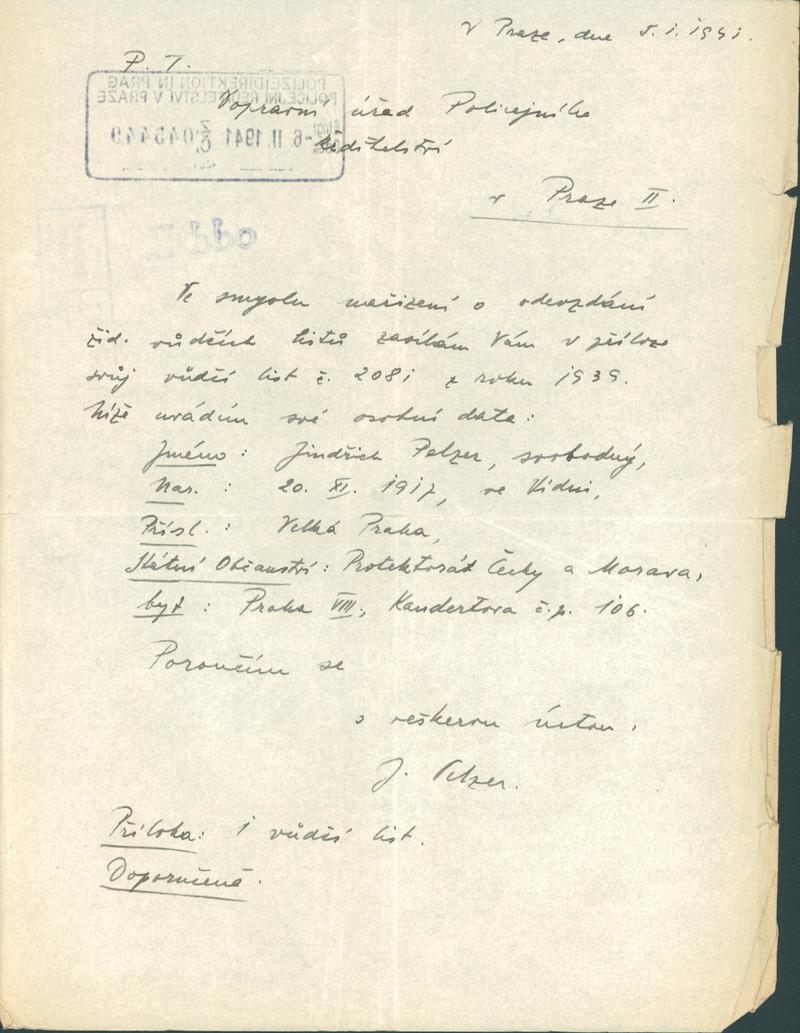 V Praze, dne 5. i. i941.
P. T.
POLIZEIDIREKTION IN PRAG
POLICEJNÍ ŘEDITELSTVÍ V PRAZE
-6. II. 1941 Z. Č. 045449
Dopravní úřad Policejního
ředitelství
v Praze II.
odd II
Ve smyslu nařízení o odevzdání
žid. vůdčích listů zasílám Vám v příloze
svůj vůdčí list č. 208i z roku i939.
Níže uvádím své osobní data:
Jméno: Jindřich Pelzer, svobodný,
Nar. : 20. XI. i9i7, ve Vídni,
Přísl. : Velká Praha,
Státní Občanství: Protektorát Čechy a Morava,
byt : Praha VIII, Kandertova č.p. i06.
Poroučím se
s veškerou úctou.
J. Pelzer.
Příloha: i vůdčí list.
Doporučeně.